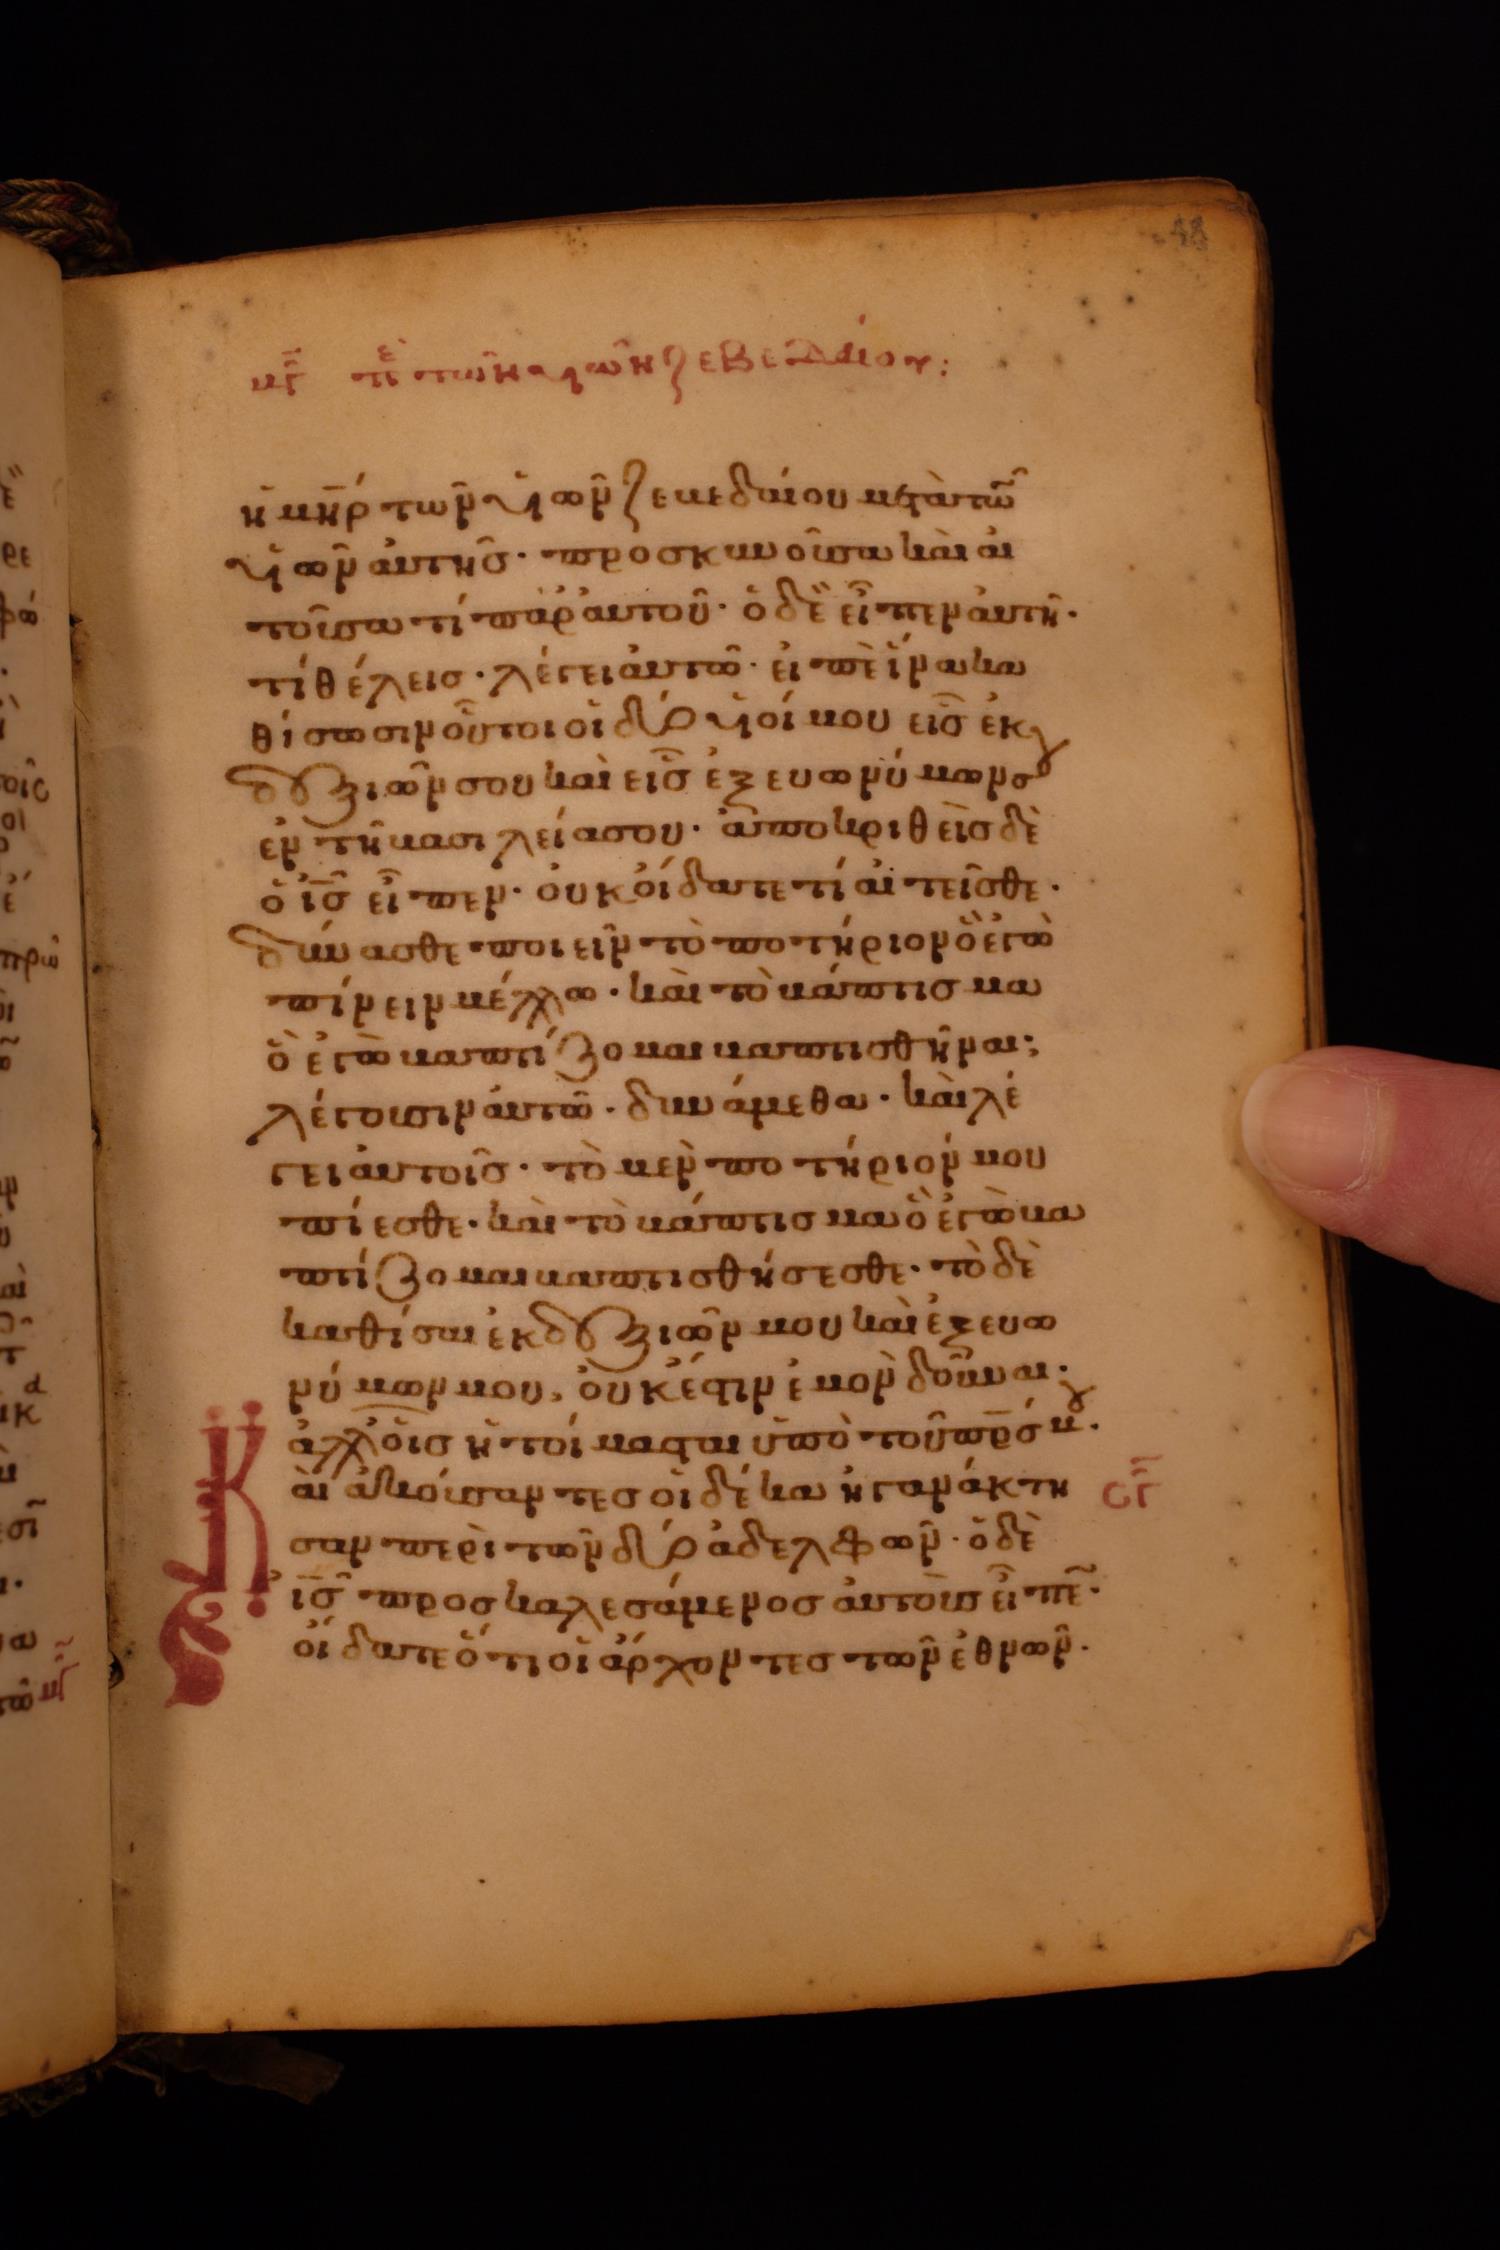 μγ πε τῶν υἱῶν ζεβεδαίου:
ἡ μηρ τῶν υἱῶν ζεβεδαίου μετὰ τῶν
υἱῶν ἀυτῆς· προσκυνοῦσα καὶ αἰ
τοῦσα τί παρ ἀυτοῦ· ὁ δὲ εἶπεν ἀυτῆ·
τί θέλεις· λέγει ἀυτῶ· εἰπὲ ἵνα κα
θίσωσιν οὗτοι οἱ δύο υἱοί μου εἷς ἐκ
δεξιῶν σου καὶ εἷς ἐξ ευωνύμων σου
ἐν τῆ βασιλεία σου· ἀποκριθεὶς δὲ
ὁ ις εἶπεν· ὀυκ ὀίδατε τί αἰτεῖσθε·
δύνασθε ποιεῖν τὸ ποτήριον ὃ ἐγὼ
πίνειν μέλλω· καὶ τὸ βάπτισμα
ὃ ἐγὼ βαπτίζομαι βαπτισθῆναι;
λέγουσιν ἀυτῶ· δυνάμεθα· καὶ λέ
γει ἀυτοῖς· τὸ μὲν ποτήριόν μου
πίεσθε· καὶ τὸ βάπτισμα ὃ ἐγὼ βα
πτίζομαι βαπτισθήσεσθε· τὸ δὲ
καθίσαι ἐκ δεξιῶν μου καὶ ἐξ ευω
νύμων μου, ὀυκ ἔστιν ἐμὸν δοῦναι·
ἀλλ ὁἷς ἡτοίμασται ὑπὸ τοῦ πρς μου·
Καὶ ἀκούσαντες οἱ δέκα ἠγανάκτη σγ
σαν περὶ τῶν δύο ἀδελφῶν· ὁ δὲ
ις προσκαλεσάμενος ἀυτοὺς εἶπε·
ὀίδατε ὅτι οἱ ἄρχοντες τῶν ἐθνῶν·